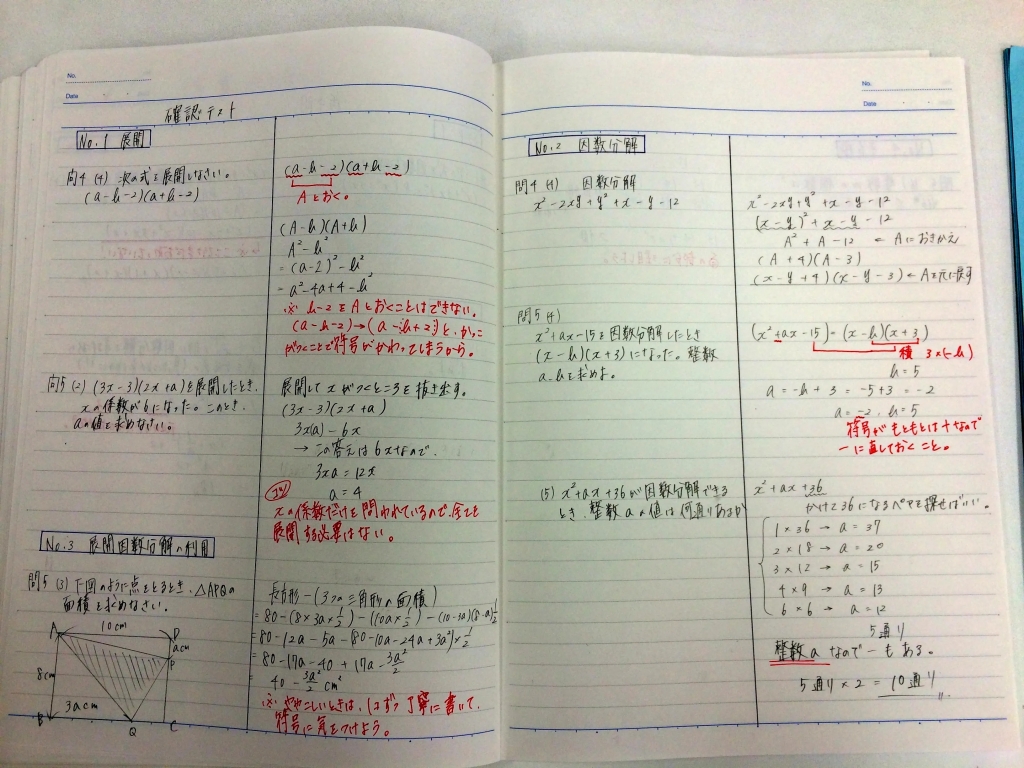 No.
Date
確認テスト
No.1 展開
問4 (4) 次の式を展開しなさい。
(a-b-2)(a+b-2)
(a-b-2)(a+b-2)
Aとおく。
(A-b)(A+b)
A²-b²
=(a-2)²-b²
=a²-4a+4-b²
※ b-2をAとおくことはできない。
(a-b-2)→(a-(b+2))と、かっこ
がつくことで符号がかわってしまうから。
問5 (2) (3x-3)(2x+a)を展開したとき、
xの係数が6になった。このとき、
aの値を求めなさい。
展開してxがつくところを抜き出す。
(3x-3)(2x+a)
3x(a)-6x
→この答えは6xなので、
3xa=12x
a=4
xの係数だけを問われているので、全てを
展開する必要はない。
No.3 展開因数分解の利用
問5 (3) 下図のように点をとるとき、△APQの
面積を求めなさい。
10cm
A
D
acm
P
8cm
3acm
B
Q
C
長方形-(3つの三角形の面積)
=80-(8×3a×1/2)-(10a×1/2)-(10-3a)(8-a)1/2
=80-12a-5a-(80-10a-24a+3a²)×1/2
=80-17a-40+17a-3a²/2
40-3a²/2 cm²
※ ややこしいときは、1つずつ丁寧に書いて、
符号に気をつけよう。
No.
Date
No.2 因数分解
問4 (4) 因数分解
x²-2xy+y²+x-y-12
x²-2xy+y²+x-y-12
(x-y)²+x-y-12
A²+A-12 ←Aにおきかえ
(A+4)(A-3)
(x-y+4)(x-y-3)←Aを元に戻す
問5 (4)
x²+ax-15を因数分解したとき
(x-b)(x+3)になった。整数
a、bを求めよ。
(x²+ax-15)=(x-b)(x+3)
積 3×(-b)
b=5
a=-b+3=-5+3=-2
a=-2、b=5
符号がもともとは+なので
-に直しておくこと。
(5) x²+ax+36が因数分解できる
とき、整数aの値は何通りあるか
x²+ax+36
かけて36になるペアを探せばいい。
1×36→a=37
2×18→a=20
3×12→a=15
4×9→a=13
6×6→a=12
5通り
整数aなので-もある。
5通り×2=10通り